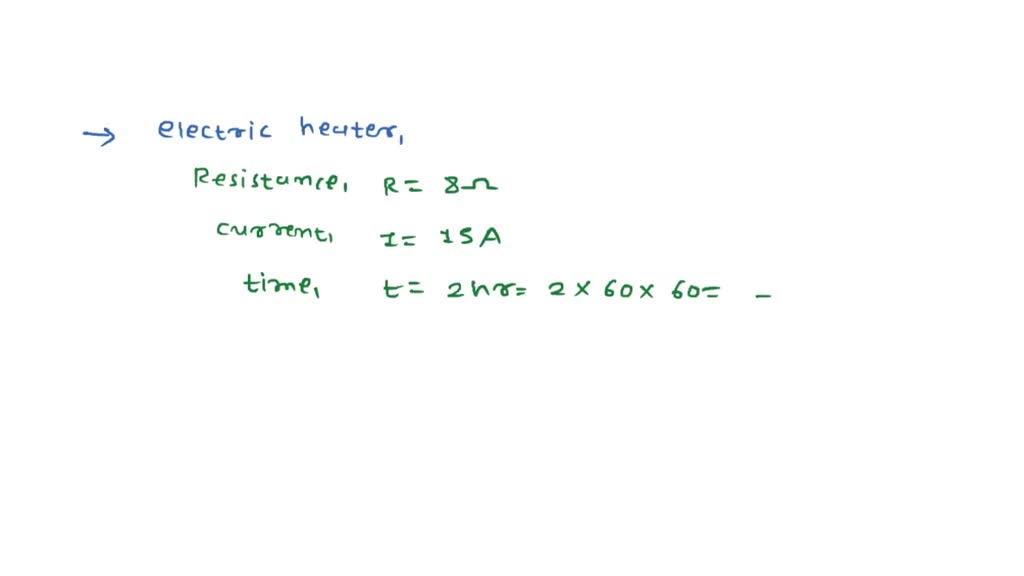 → electric heater,
Resistance, R = 8Ω
current, I = 15A
time, t = 2hr = 2 × 60 × 60 = –